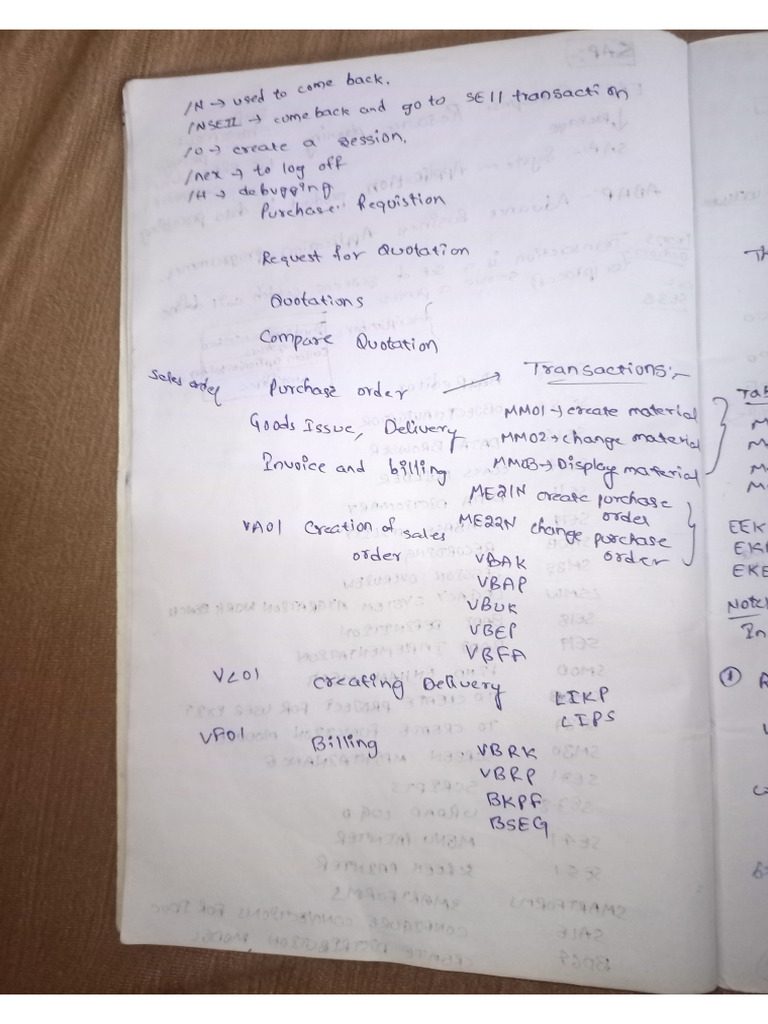 /N → used to come back.
/NSE11 → come back and go to SE11 transaction
/O → create a session.
/nex → to log off
/H → debugging
Purchase Requistion
Request for Quotation
Quotations
Compare Quotation
Sales order
Purchase order → Transactions:-
Goods Issue, Delivery
MM01 → create material
MM02 → change material
Invoice and billing
MM03 → Display material
ME21N create purchase order
VA01 Creation of sales order
ME22N change purchase order
VBAK
VBAP
VBUK
VBEP
VBFA
VL01 Creating Delivery
LIKP
LIPS
VF01 Billing
VBRK
VBRP
BKPF
BSEG
EEK